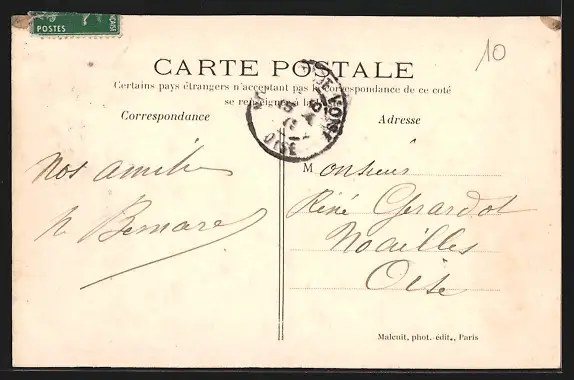 POSTES
10
CARTE POSTALE
Certains pays étrangers n'acceptant pas la correspondance de ce coté
se renseigner à la
Correspondance
Adresse
Nos amitiés
Monsieur
Réné Gerardot
Noailles
Oise
Malcuit, phot. édit., Paris